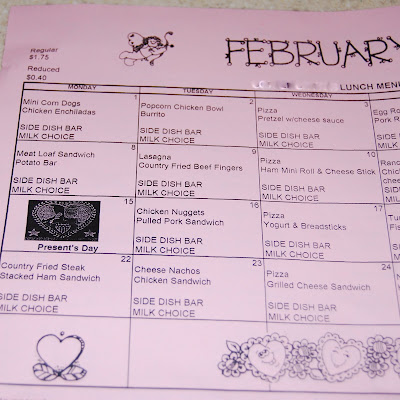 Regular
$1.75
Reduced
$0.40
FEBRUARY
LUNCH MENU
MONDAY
TUESDAY
WEDNESDAY
1
Mini Corn Dogs
Chicken Enchiladas
SIDE DISH BAR
MILK CHOICE
2
Popcorn Chicken Bowl
Burrito
SIDE DISH BAR
MILK CHOICE
3
Pizza
Pretzel w/cheese sauce
SIDE DISH BAR
MILK CHOICE
Egg Ro
Pork R
SIDE
MILK
8
Meat Loaf Sandwich
Potato Bar
SIDE DISH BAR
MILK CHOICE
9
Lasagna
Country Fried Beef Fingers
SIDE DISH BAR
MILK CHOICE
10
Pizza
Ham Mini Roll & Cheese Stick
SIDE DISH BAR
MILK CHOICE
Ranc
Chic
SIDE
MILK
15
Present's Day
16
Chicken Nuggets
Pulled Pork Sandwich
SIDE DISH BAR
MILK CHOICE
17
Pizza
Yogurt & Breadsticks
SIDE DISH BAR
MILK CHOICE
22
Country Fried Steak
Stacked Ham Sandwich
SIDE DISH BAR
MILK CHOICE
23
Cheese Nachos
Chicken Sandwich
SIDE DISH BAR
MILK CHOICE
24
Pizza
Grilled Cheese Sandwich
SIDE DISH BAR
MILK CHOICE